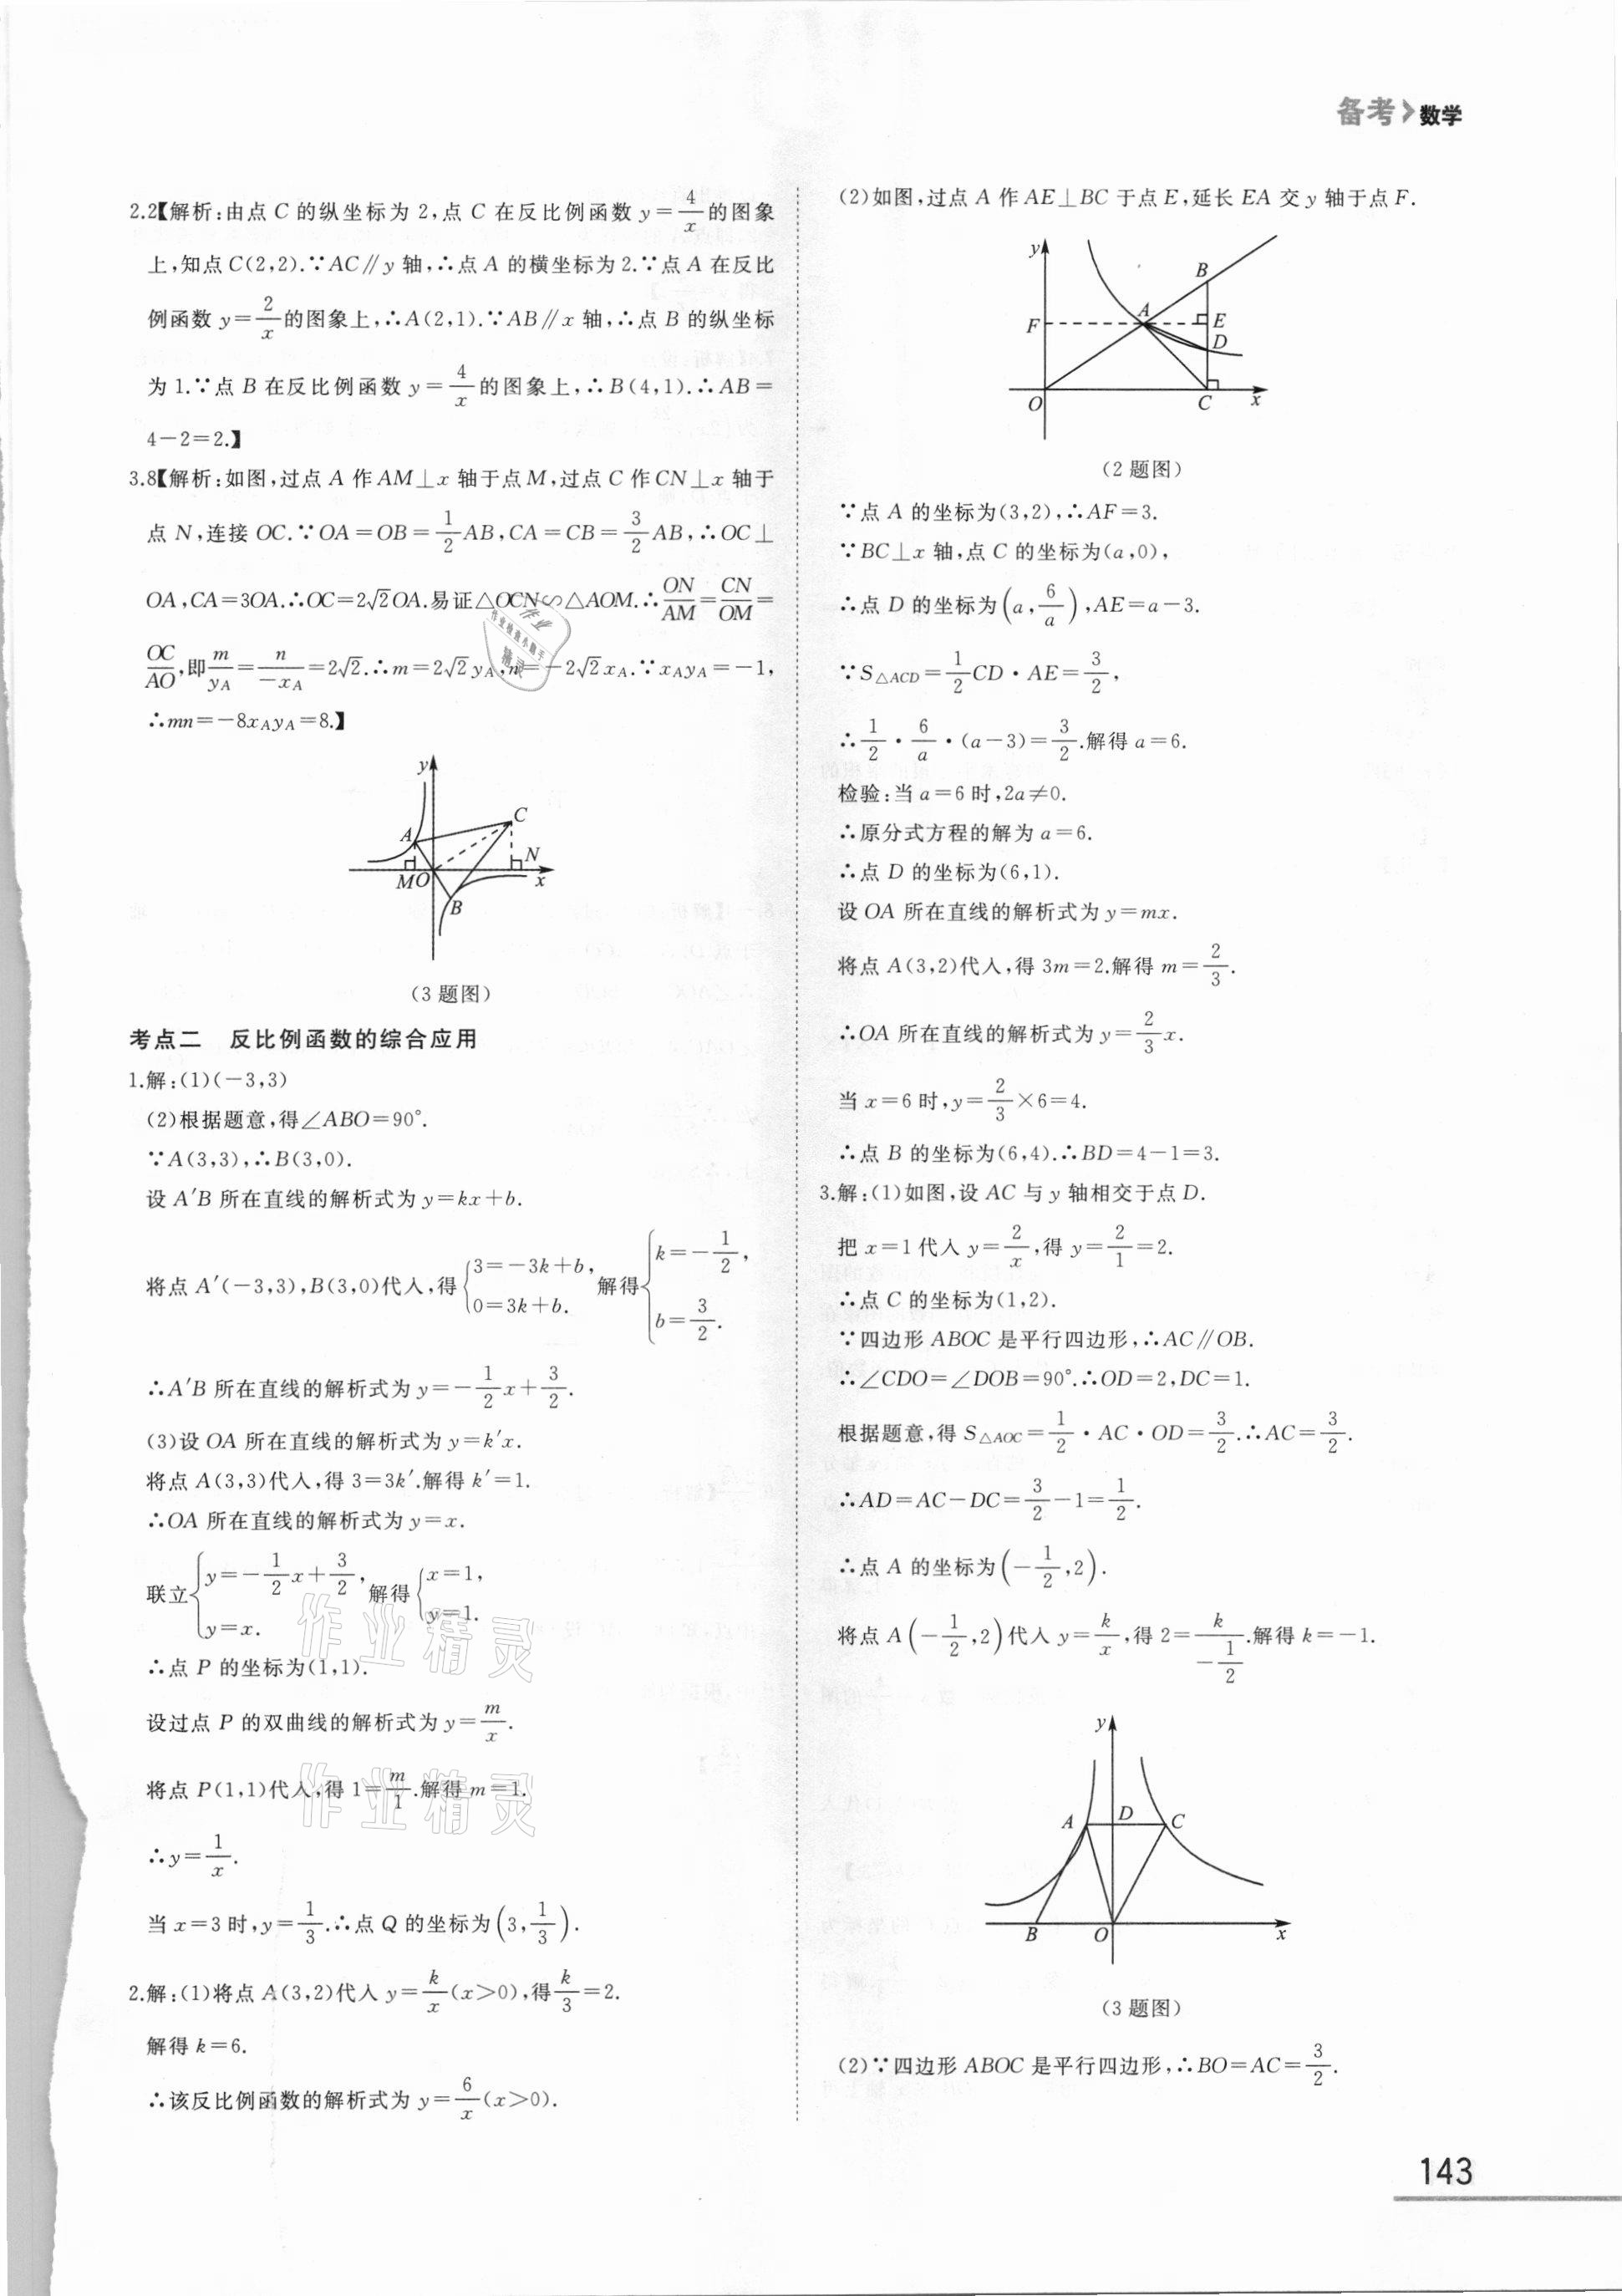 备考>数学
2.2【解析:由点 C 的纵坐标为 2,点 C 在反比例函数 y=4/x 的图象
上,知点C(2,2).∵AC∥y 轴,∴点 A 的横坐标为2.∵点 A 在反比
例函数 y=2/x 的图象上,∴A(2,1).∵AB∥x 轴,∴点 B 的纵坐标
为 1.∵点 B 在反比例函数 y=4/x 的图象上,∴B(4,1).∴AB=
4-2=2.】
3.8【解析:如图,过点 A 作 AM⊥x 轴于点M,过点 C 作 CN⊥x 轴于
点 N,连接 OC.∵OA=OB=1/2AB,CA=CB=3/2AB,∴OC⊥
OA,CA=3OA.∴OC=2√2OA.易证△OCN∽△AOM.∴ON/AM=CN/OM=
OC/AO,即m/yA=n/-xA=2√2.∴m=2√2yA,n=-2√2xA.∵xAyA=-1,
∴mn=-8xAyA=8.】
y
A
C
N
MO
x
B
(3题图)
考点二 反比例函数的综合应用
1.解:(1)(-3,3)
(2)根据题意,得∠ABO=90°.
∵A(3,3),∴B(3,0).
设 A′B 所在直线的解析式为 y=kx+b.
将点 A′(-3,3),B(3,0)代入,得{3=-3k+b, 0=3k+b. 解得{k=-1/2, b=3/2.
∴A′B 所在直线的解析式为 y=-1/2x+3/2.
(3)设 OA 所在直线的解析式为 y=k′x.
将点 A(3,3)代入,得 3=3k′.解得 k′=1.
∴OA 所在直线的解析式为 y=x.
联立{y=-1/2x+3/2, y=x. 解得{x=1, y=1.
∴点 P 的坐标为(1,1).
设过点 P 的双曲线的解析式为 y=m/x.
将点 P(1,1)代入,得 1=m/1.解得 m=1.
∴y=1/x.
当 x=3 时,y=1/3.∴点 Q 的坐标为(3,1/3).
2.解:(1)将点 A(3,2)代入 y=k/x(x>0),得k/3=2.
解得 k=6.
∴该反比例函数的解析式为 y=6/x(x>0).
作业精灵
作业精灵
作业
作业检查小助手
精灵
(2)如图,过点 A 作 AE⊥BC 于点 E,延长 EA 交 y 轴于点 F.
y
B
A
F
E
D
O
C
x
(2题图)
∵点 A 的坐标为(3,2),∴AF=3.
∵BC⊥x 轴,点 C 的坐标为(a,0),
∴点 D 的坐标为(a,6/a),AE=a-3.
∵S△ACD=1/2CD·AE=3/2,
∴1/2·6/a·(a-3)=3/2.解得 a=6.
检验:当 a=6 时,2a≠0.
∴原分式方程的解为 a=6.
∴点 D 的坐标为(6,1).
设 OA 所在直线的解析式为 y=mx.
将点 A(3,2)代入,得 3m=2.解得 m=2/3.
∴OA 所在直线的解析式为 y=2/3x.
当 x=6 时,y=2/3×6=4.
∴点 B 的坐标为(6,4).∴BD=4-1=3.
3.解:(1)如图,设 AC 与 y 轴相交于点 D.
把 x=1 代入 y=2/x,得 y=2/1=2.
∴点 C 的坐标为(1,2).
∵四边形 ABOC 是平行四边形,∴AC∥OB.
∴∠CDO=∠DOB=90°.∴OD=2,DC=1.
根据题意,得 S△AOC=1/2·AC·OD=3/2.∴AC=3/2.
∴AD=AC-DC=3/2-1=1/2.
∴点 A 的坐标为(-1/2,2).
将点 A(-1/2,2)代入 y=k/x,得 2=k/(-1/2).解得 k=-1.
y
A
D
C
B
O
x
(3题图)
(2)∵四边形 ABOC 是平行四边形,∴BO=AC=3/2.
143